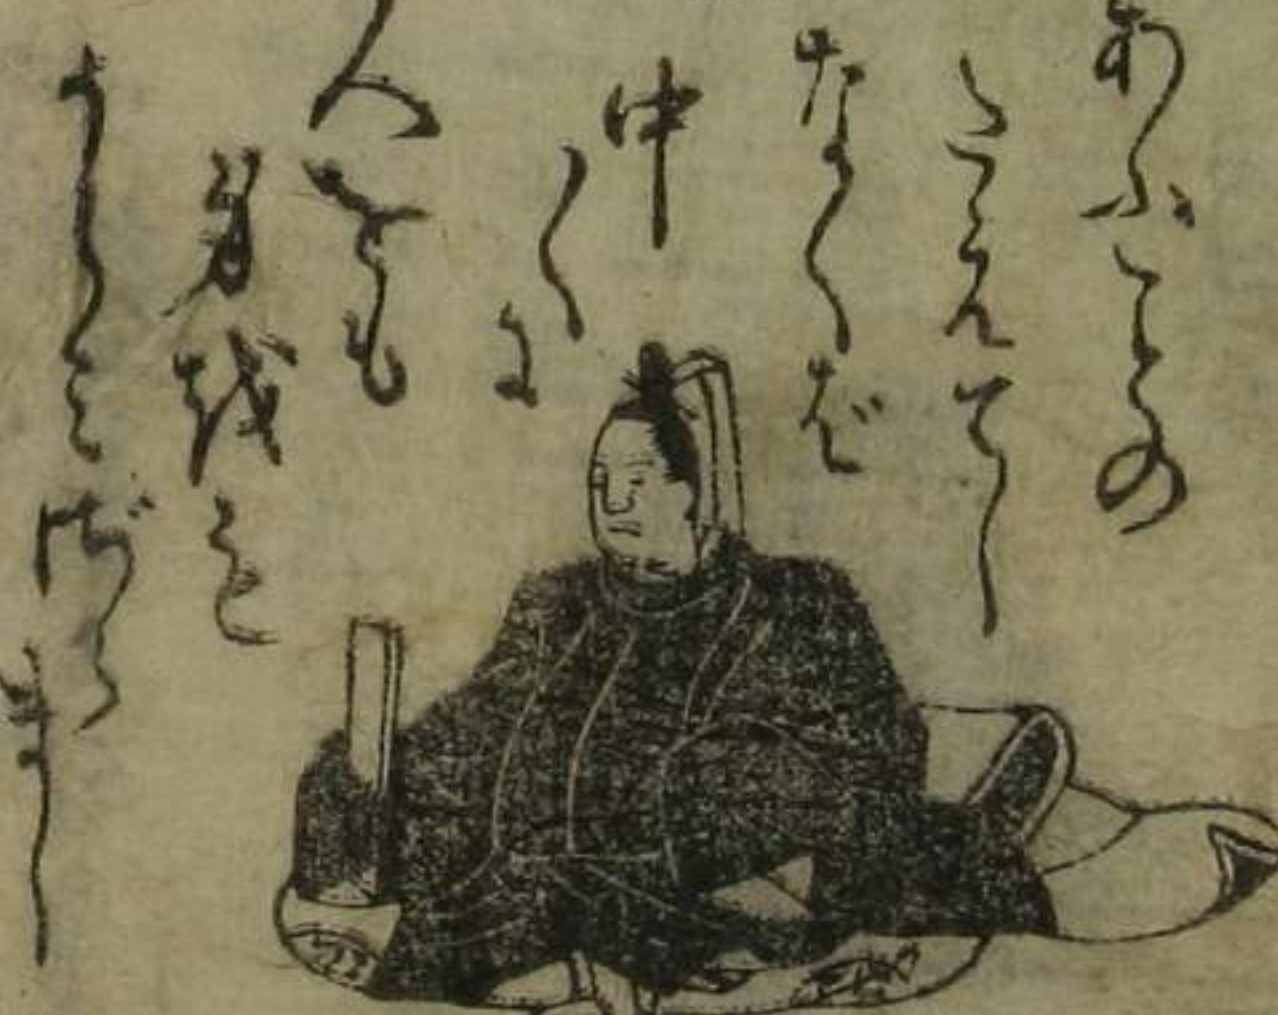 あふことの
たえてし
なくば
中
〱に
人をも
身をも
うらみざら
まし